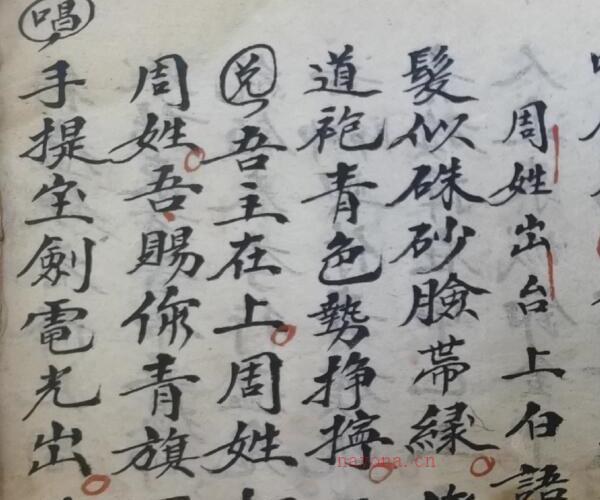 周姓出台上白語
髮似硃砂臉帶縁
道袍青色勢掙
兑吾主在上周姓
周姓吾賜你青旗
唱
手提宝劍電光出
narona.cn